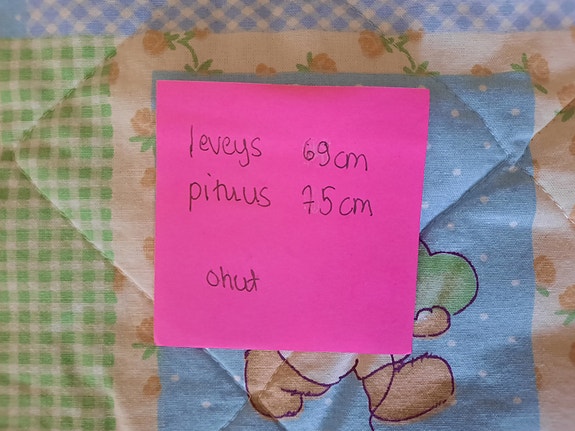 leveys 69cm
pituus 75cm
ohut